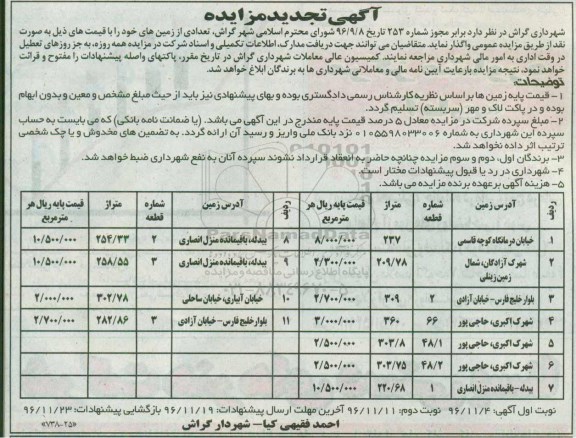 آگهی تجدید مزایده
شهرداری گراش در نظر دارد برابر مجوز شماره ۲۵۳ تاریخ ۹۶/۹/۸ شورای محترم اسلامی شهر گراش، تعدادی از زمین های خود را با قیمت های ذیل به صورت
نقد از طریق مزایده عمومی واگذار نماید. متقاضیان می توانند جهت دریافت مدارک، اطلاعات تکمیلی و اسناد شرکت در مزایده همه روزه، به جز روزهای تعطیل
در وقت اداری به امور مالی شهرداری مراجعه نمایند. کمیسیون عالی معاملات شهرداری گراش در تاریخ مقرر، پاکتهای واصله پیشنهادات را مفتوح و قرائت
خواهد نمود، نتیجه مزایده بارعایت آیین نامه مالی و معاملاتی شهرداری ها به برندگان ابلاغ خواهد شد.
توضیحات:
۱- قیمت پایه زمین ها بر اساس نظریه کارشناس رسمی دادگستری بوده و بهای پیشنهادی نیز باید از حیث مبلغ مشخص و معین و بدون ابهام
بوده و در پاکت لاک و مهر (سربسته) تسلیم گردد.
۲- مبلغ سپرده شرکت در مزایده معادل ۵ درصد قیمت پایه مندرج در این آگهی می باشد. (یا ضمانت نامه بانکی) که می بایست به حساب
سپرده این شهرداری به شماره ۰۱۰۵۵۹۸۰۳۳۰۰۶ نزد بانک ملی واریز و رسید آن ارائه گردد. به تضمین های مخدوش و یا چک شخصی
ترتیب اثر داده نخواهد شد.
۳- برندگان اول، دوم و سوم مزایده چنانچه حاضر به انعقاد قرارداد نشوند سپرده آنان به نفع شهرداری ضبط خواهد شد.
۴- شهرداری در رد یا قبول پیشنهادات مختار است.
۵- هزینه آگهی برعهده برنده مزایده می باشد.
ردیف آدرس زمین شماره قطعه متراژ قیمت پایه ریال هر مترمربع ردیف آدرس زمین شماره قطعه متراژ قیمت پایه ریال هر مترمربع
۱ خیابان درمانگاه کوچه قاسمی ۲۳۷ ۸/۰۰۰/۰۰۰ ۸ بیدله، باقیمانده منزل انصاری ۲ ۲۵۴/۳۳ ۱۰/۵۰۰/۰۰۰
۲ شهرک آزادگان، شمال زمین زینلی ۲۰۹/۷۸ ۴/۳۰۰/۰۰۰ ۹ بیدله، باقیمانده منزل انصاری ۳ ۲۵۸/۵۵ ۱۰/۵۰۰/۰۰۰
۳ بلوار خلیج فارس - خیابان آزادی ۲ ۳۰۹ ۲/۷۰۰/۰۰۰ ۱۰ خیابان آبیاری، خیابان ساحلی ۳۰۲/۷۸ ۲/۰۰۰/۰۰۰
۴ شهرک اکبری، حاجی پور ۶۶ ۳۶۰ ۳/۰۰۰/۰۰۰ ۱۱ بلوار خلیج فارس - خیابان آزادی ۳ ۲۸۲/۸۶ ۲/۷۰۰/۰۰۰
۵ شهرک اکبری، حاجی پور ۴۸/۱ ۳۰۳/۸ ۲/۵۰۰/۰۰۰
۶ شهرک اکبری، حاجی پور ۴۸/۲ ۳۰۳/۷۵ ۲/۵۰۰/۰۰۰
۷ بیدله - باقیمانده منزل انصاری ۱ ۲۲۰/۶۸ ۱۰/۵۰۰/۰۰۰
نوبت اول آگهی: ۹۶/۱۱/۴ نوبت دوم: ۹۶/۱۱/۱۱ آخرین مهلت ارسال پیشنهادات: ۹۶/۱۱/۱۹ بازگشایی پیشنهادات: ۹۶/۱۱/۲۳
احمد فقیهی کیا - شهردار گراش
«۷۳۸-۲۵»